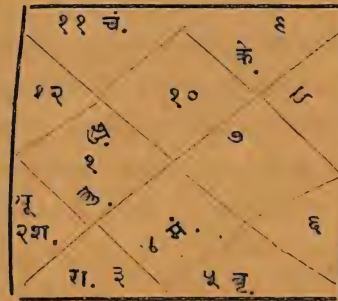 ११ चं.
९
के.
१२
१०
८
शु.
७
१
बु.
सू
२श.
४ मं.
६
रा. ३
५ बृ.